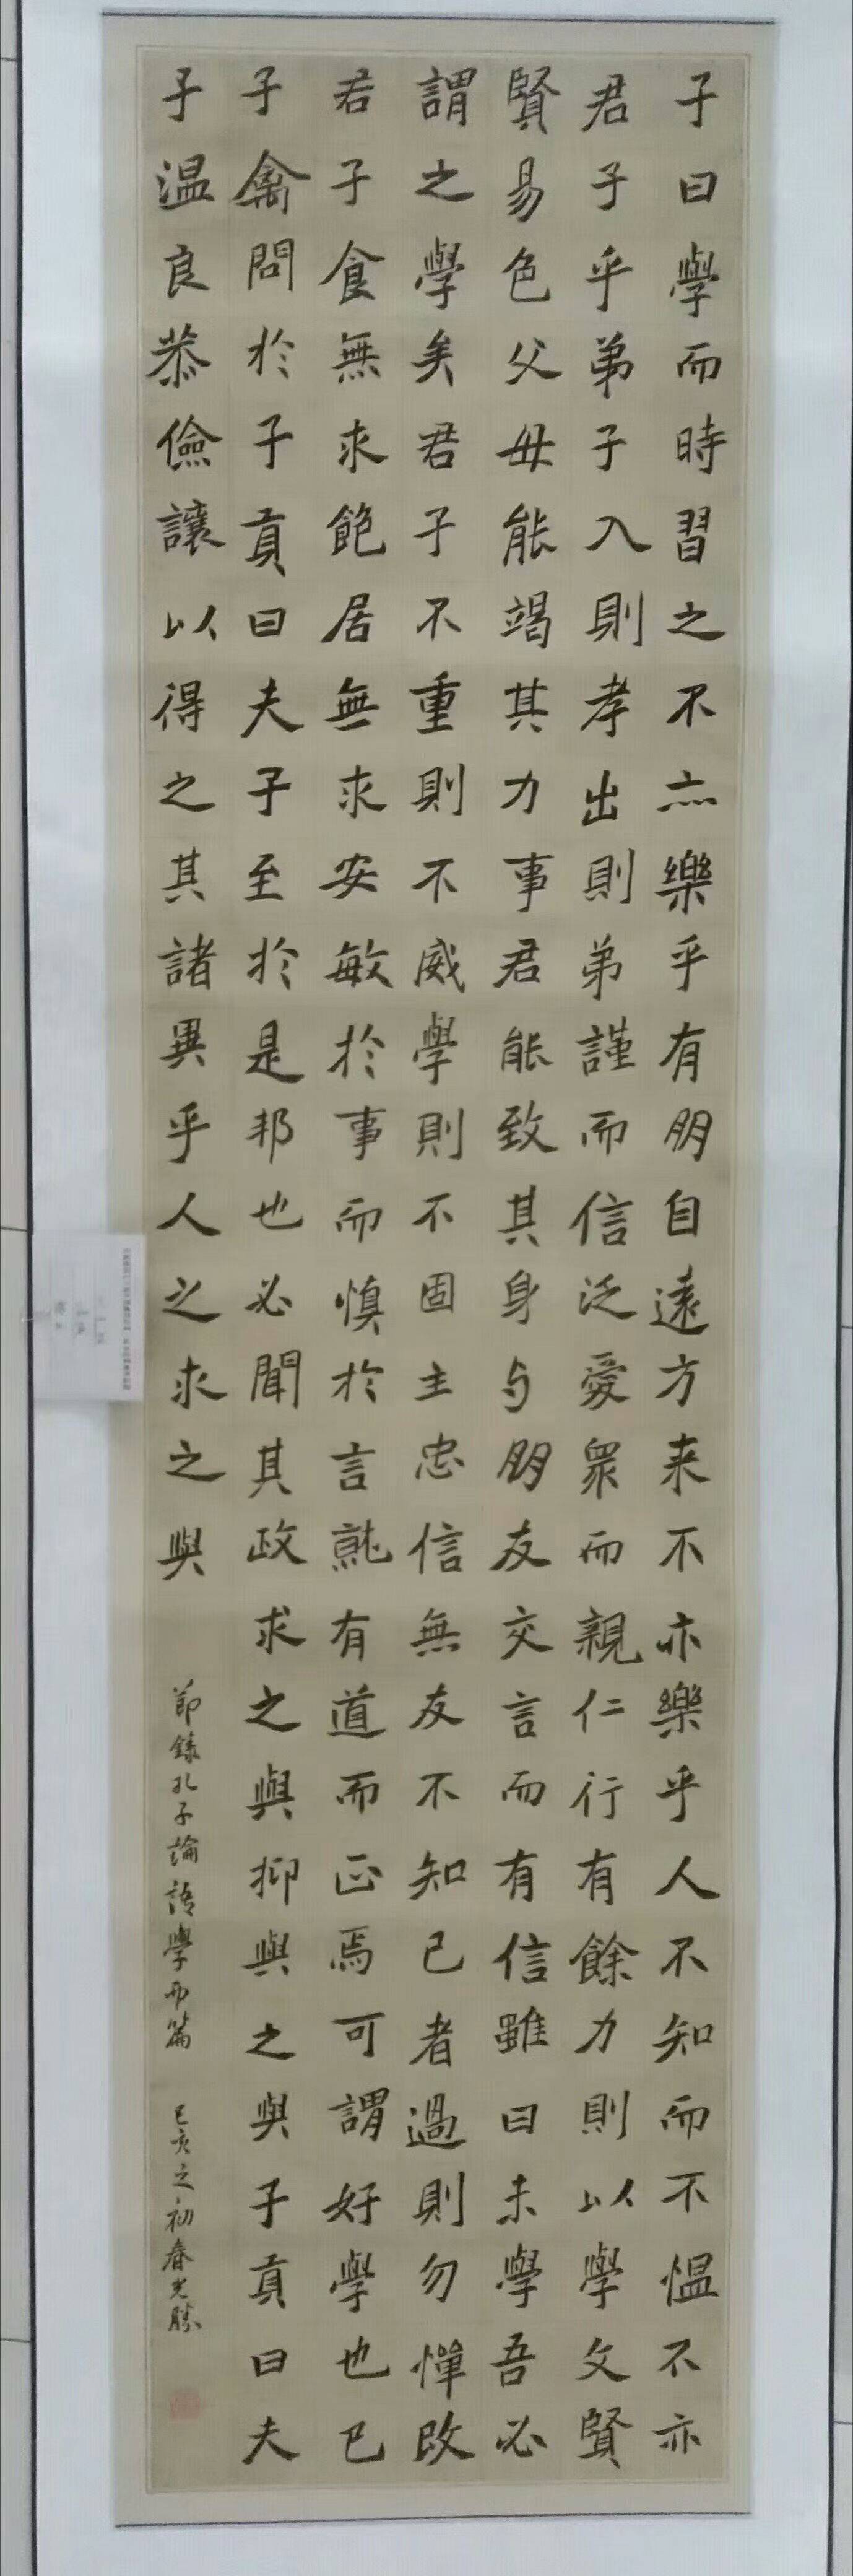 子曰學而時習之不亦樂乎有朋自遠方来不亦樂乎人不知而不愠不亦
君子乎弟子入則孝出則弟謹而信泛愛眾而親仁行有餘力則以學文賢
賢易色父母能竭其力事君能致其身与朋友交言而有信雖曰未學吾必
謂之學矣君子不重則不威學則不固主忠信無友不知己者過則勿憚改
君子食無求飽居無求安敏於事而慎於言就有道而正焉可謂好學也已
子禽問於子貢曰夫子至於是邦也必聞其政求之與抑與之與子貢曰夫
子温良恭儉讓以得之其諸異乎人之求之與
節錄孔子論語學而篇 己亥之初春光勝